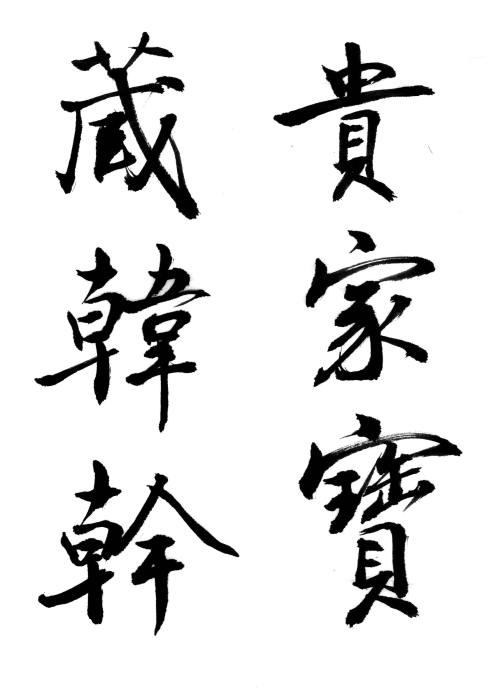 貴家寶
蔵韓幹